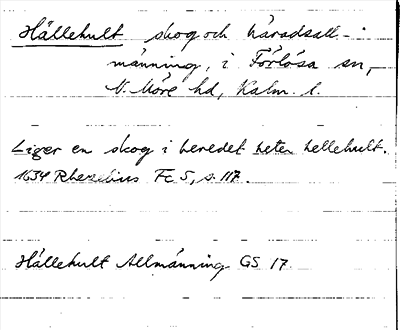 Hällehult skog och häradsall-
männing, i Förlösa sn,
N. Möre hd, Kalm. l.
Liger en skog i heredet heter hellehult.
1634 Rhezelius Fc 5, s. 117.
Hällehult Allmänning GS 17